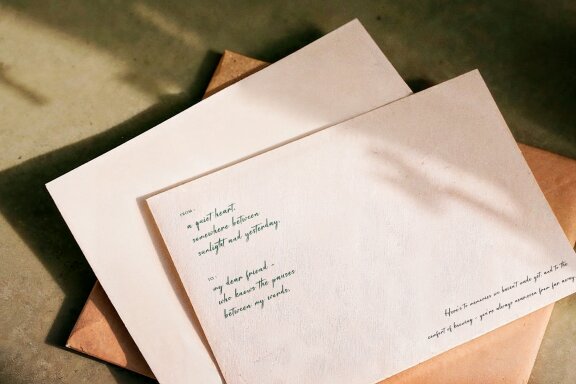 FROM -
a quiet heart,
somewhere between
sunlight and yesterday.
TO -
my dear friend -
who knows the pauses
between my words.
Here's to memories we haven't made yet and to the
comfort of knowing - you're always tomorrow from far away